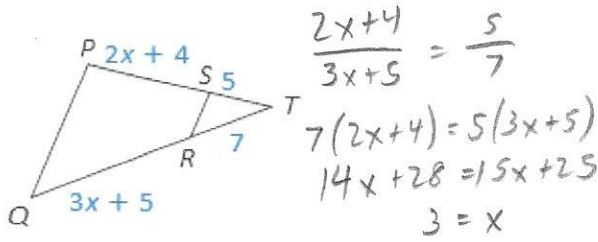 P 2x + 4
S 5
T
R 7
Q 3x + 5
2x+4 / 3x+5 = 5 / 7
7(2x+4)=5(3x+5)
14x+28=15x+25
3 = x